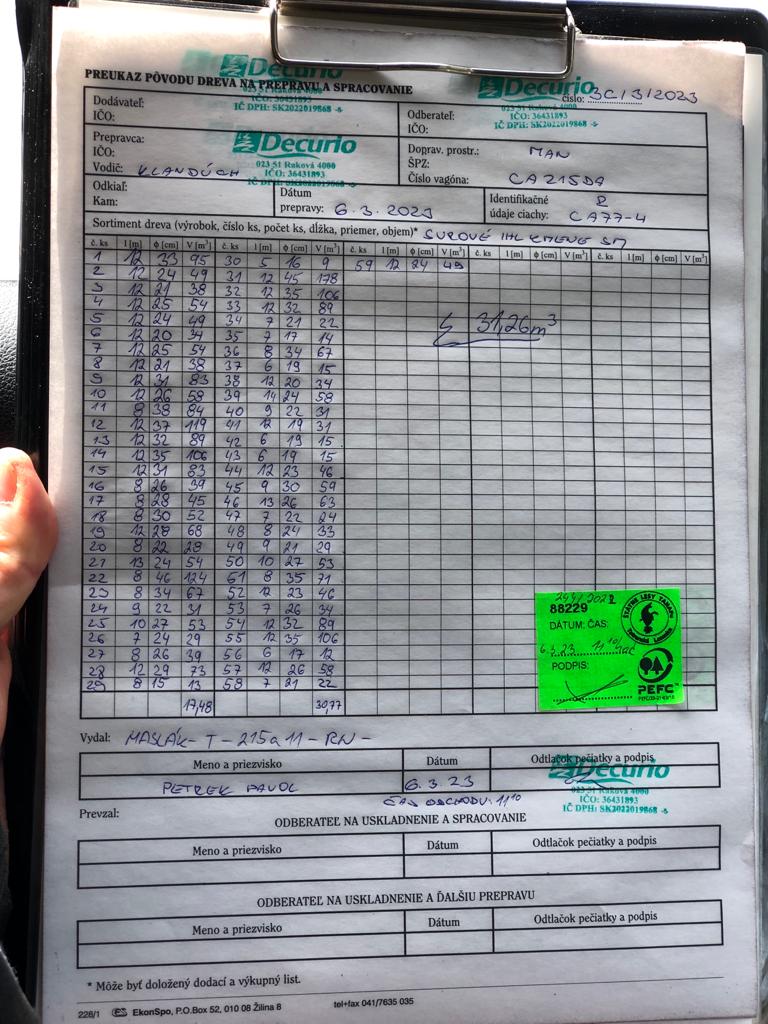 Decurio
PREUKAZ PÔVODU DREVA NA PREPRAVU A SPRACOVANIE
023 51 Raková 4000
IČO: 36431893
IČ DPH: SK2022019868
Decurio
číslo: 3C/3/2023
IČO: 36431893
IČ DPH: SK2022019868
Dodávateľ:
IČO:
Odberateľ:
IČO:
Prepravca:
IČO:
Vodič: KLANDÚCH
Decurio
023 51 Raková 4000
IČO: 36431893
Doprav. prostr.: MAN
ŠPZ:
Číslo vagóna: CA215DA
Odkiaľ:
Kam:
Dátum
prepravy: 6.3.2023
Identifikačné
údaje ciachy: CA77-4
Sortiment dreva (výrobok, číslo ks, počet ks, dĺžka, priemer, objem)* SUROVÉ IHL KMENE SM
č. ks l [m] ϕ [cm] V [m³] č. ks l [m] ϕ [cm] V [m³] č. ks l [m] ϕ [cm] V [m³] č. ks l [m] ϕ [cm] V [m³] č. ks l [m] ϕ [cm] V [m³]
1 12 33 95 30 5 16 9 59 12 24 49
2 12 24 49 31 12 45 178
3 12 21 38 32 12 35 106
4 12 25 54 33 12 32 89
5 12 24 49 34 7 21 22
Σ 31,26m³
6 12 20 34 35 7 17 14
7 12 25 54 36 8 34 67
8 12 21 38 37 6 19 15
9 12 31 83 38 12 20 34
10 12 26 58 39 14 24 58
11 8 38 84 40 9 22 31
12 12 37 119 41 12 19 31
13 12 32 89 42 6 19 15
14 12 35 106 43 6 19 15
15 12 31 83 44 12 23 46
16 8 26 39 45 9 30 59
17 8 28 45 46 13 26 63
18 8 30 52 47 7 22 24
19 12 28 68 48 8 24 33
20 8 22 28 49 9 21 29
21 13 24 54 50 10 27 53
22 8 46 124 61 8 35 71
23 8 34 67 52 12 23 46
24 9 22 31 53 7 26 34
25 10 27 53 54 12 32 89
26 7 24 29 55 12 35 106
27 8 26 39 56 6 17 12
28 12 29 73 57 12 26 58
29 8 15 13 58 7 21 22
17,48 30,77
88229
DÁTUM: ČAS:
6.3.23 11¹⁰
PODPIS:
ŠTÁTNE LESY TANAPU
PEFC
Vydal: MASLÁK - T - 215a11 - RN -
Meno a priezvisko Dátum Odtlačok pečiatky a podpis
PETREK PAVOL 6.3.23
Decurio
023 51 Raková 4000
IČO: 36431893
IČ DPH: SK2022019868
ČAS ODCHODU: 11¹⁰
Prevzal:
ODBERATEĽ NA USKLADNENIE A SPRACOVANIE
Meno a priezvisko Dátum Odtlačok pečiatky a podpis
ODBERATEĽ NA USKLADNENIE A ĎALŠIU PREPRAVU
Meno a priezvisko Dátum Odtlačok pečiatky a podpis
* Môže byť doložený dodací a výkupný list.
228/1 EkonSpo, P.O.Box 52, 010 08 Žilina 8 tel+fax 041/7635 035